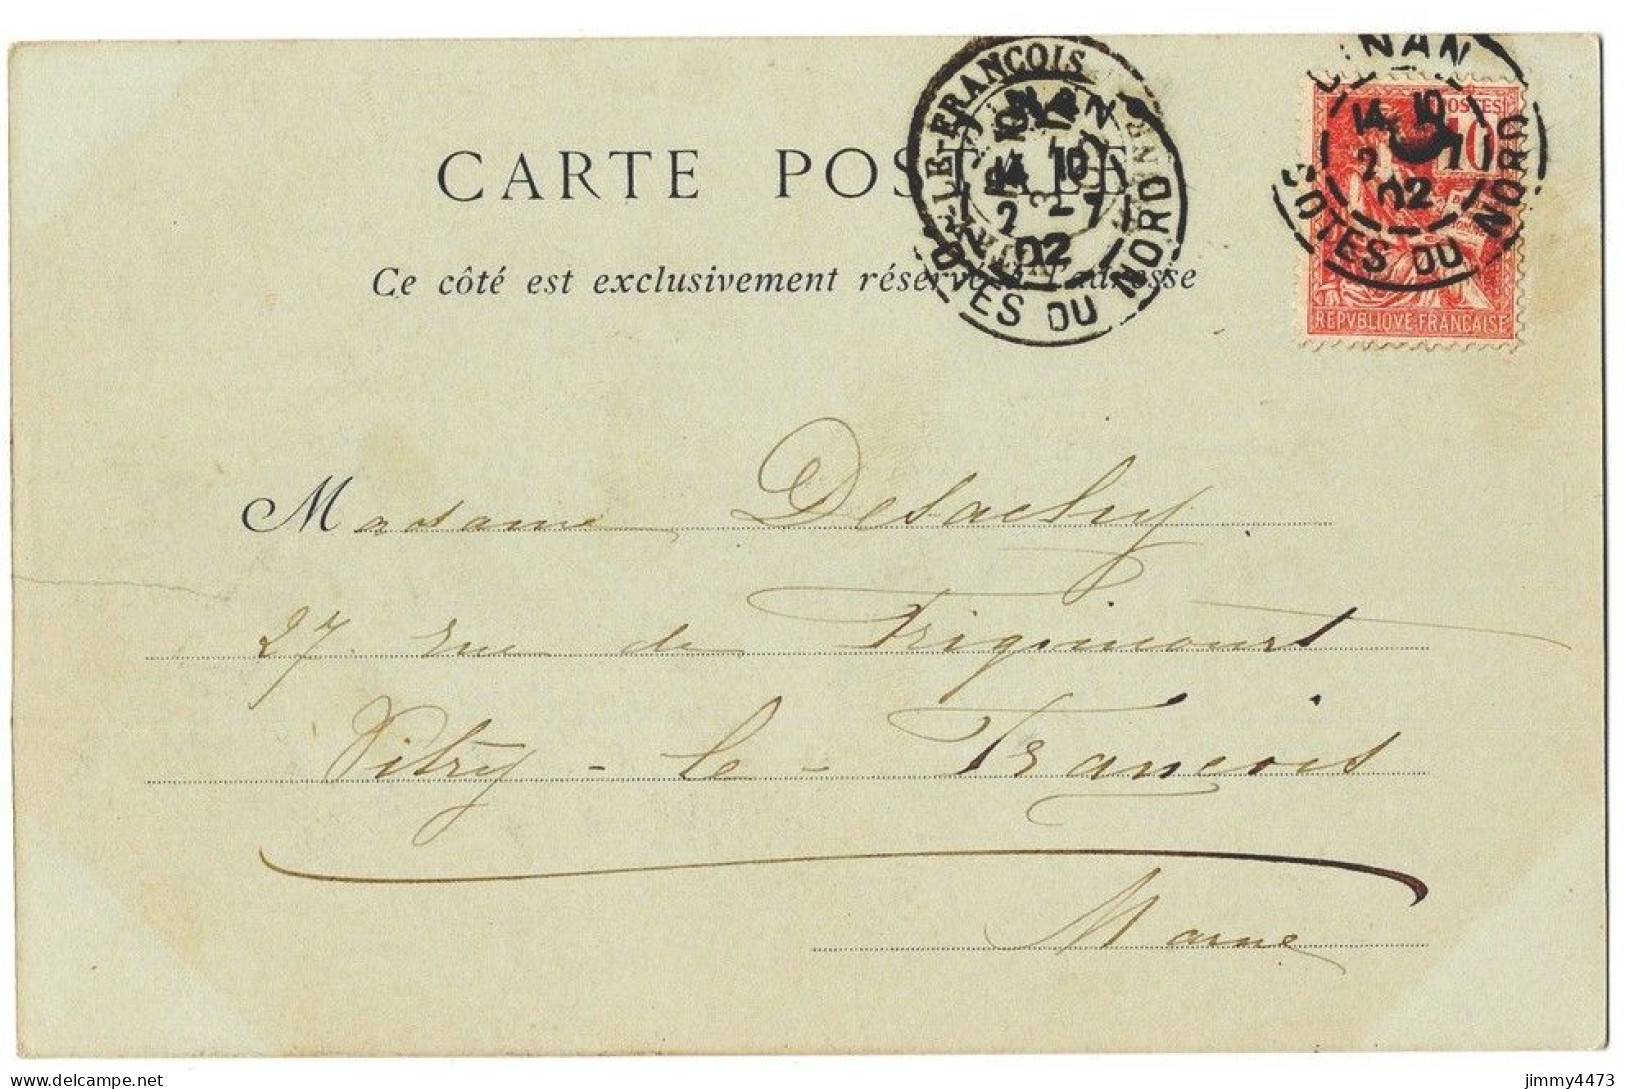 CARTE POSTALE
Ce côté est exclusivement réservé à l'adresse
VITRY-LE-FRANÇOIS
DINAN
14 10
2 -7
02
COTES DU NORD
DINAN
14 10
2 -7
02
COTES DU NORD
POSTES
10
REPVBLIQVE·FRANCAISE
Madame Desachy
27 rue de Frignicourt
Vitry - le - François
Marne
jimmy4473